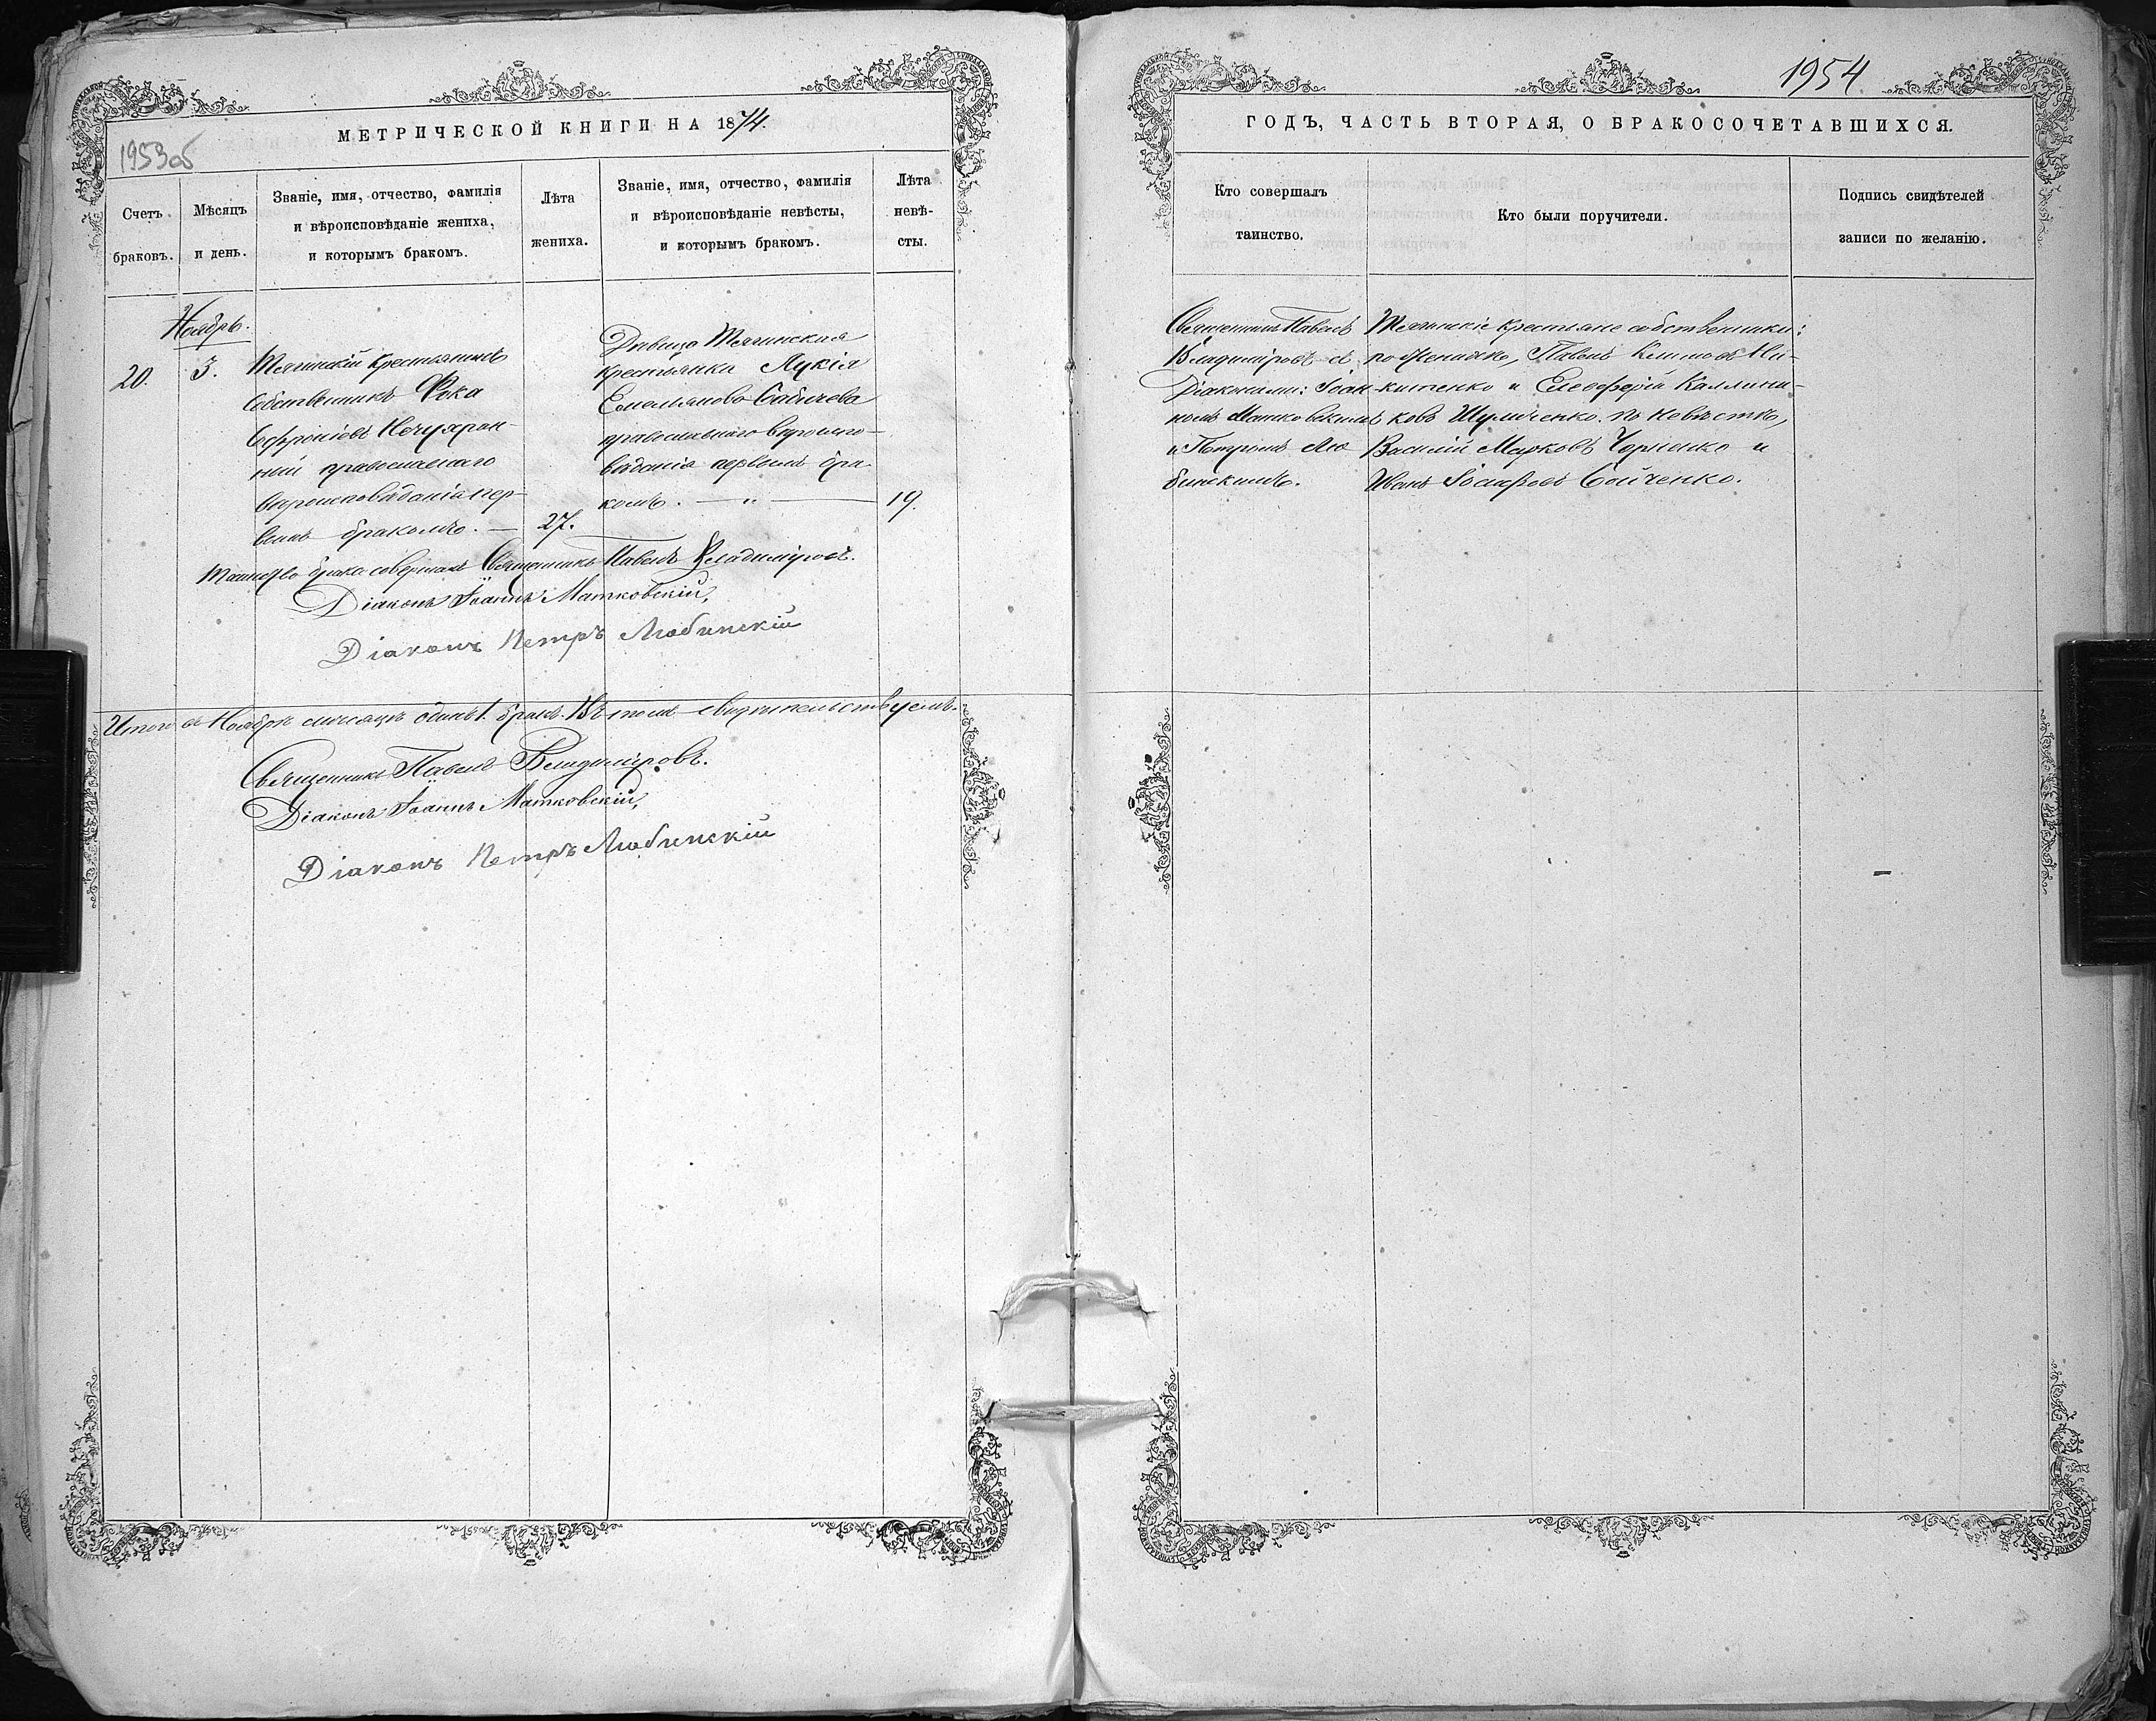 МЕТРИЧЕСКОЙ КНИГИ НА 1874.
1953об
Счетъ браковъ.
Мѣсяцъ и день.
Званіе, имя, отчество, фамилія
и вѣроисповѣданіе жениха,
и которымъ бракомъ.
Лѣта
жениха.
Званіе, имя, отчество, фамилія
и вѣроисповѣданіе невѣсты,
и которымъ бракомъ.
Лѣта
невѣ-
сты.
Ноябрь.
20.
3.
крестьянинъ
собственникъ Фока
Софроніевъ
ный православнаго
вероисповѣданія пер-
вымъ бракомъ. —
27.
Дѣвица
крестьянка Лукія
Емельянова
православнаго вероиспо-
вѣданія первымъ бра-
комъ. — „ —
19.
Таинство брака совершалъ Священникъ Павелъ Владиміровъ.
Діаконъ Іоаннъ Матковскій,
Діаконъ Петръ Любинскій
Итого въ Ноябрѣ мѣсяцѣ одинъ 1. бракъ. Въ томъ свидѣтельствуемъ.
Священникъ Павелъ Владиміровъ.
Діаконъ Іоаннъ Матковскій,
Діаконъ Петръ Любинскій
1954
ГОДЪ, ЧАСТЬ ВТОРАЯ, О БРАКОСОЧЕТАВШИХСЯ.
Кто совершалъ
таинство.
Кто были поручители.
Подпись свидѣтелей
записи по желанію.
Священникъ Павелъ
Владиміровъ съ
Діаконами: Іоан-
номъ Матковскимъ
и Петромъ Лю
бинскимъ.
крестьяне собственники:
по женихѣ, Павелъ Климовъ Ни-
китенко и Елевферій Каллини-
ковъ Шульченко. по невѣстѣ,
Василій Марковъ Черненко и
Иванъ Іосифовъ Бойченко.